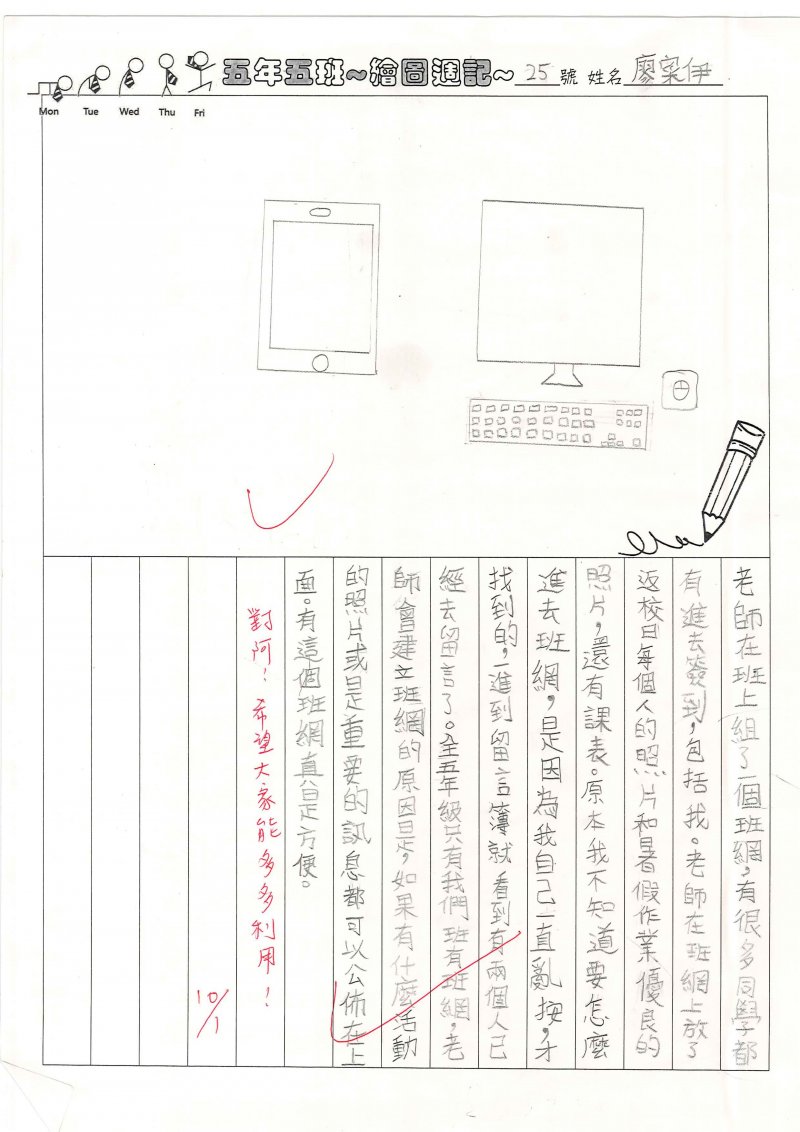 五年五班~繪圖週記~ 25 號 姓名 廖寀伊
Mon Tue Wed Thu Fri
老師在班上組了一個班網，有很多同學都
有進去簽到，包括我。老師在班網上放了
返校日每個人的照片和暑假作業優良的
照片，還有課表。原本我不知道要怎麼
進去班網，是因為我自己一直亂按，才
找到的，一進到留言簿就看到有兩個人已
經去留言了。全五年級只有我們班有班網，老
師會建立班網的原因是，如果有什麼活動
的照片或是重要的訊息都可以公佈在上
面。有這個班網真是方便。
對阿！希望大家能多多利用！
10/1